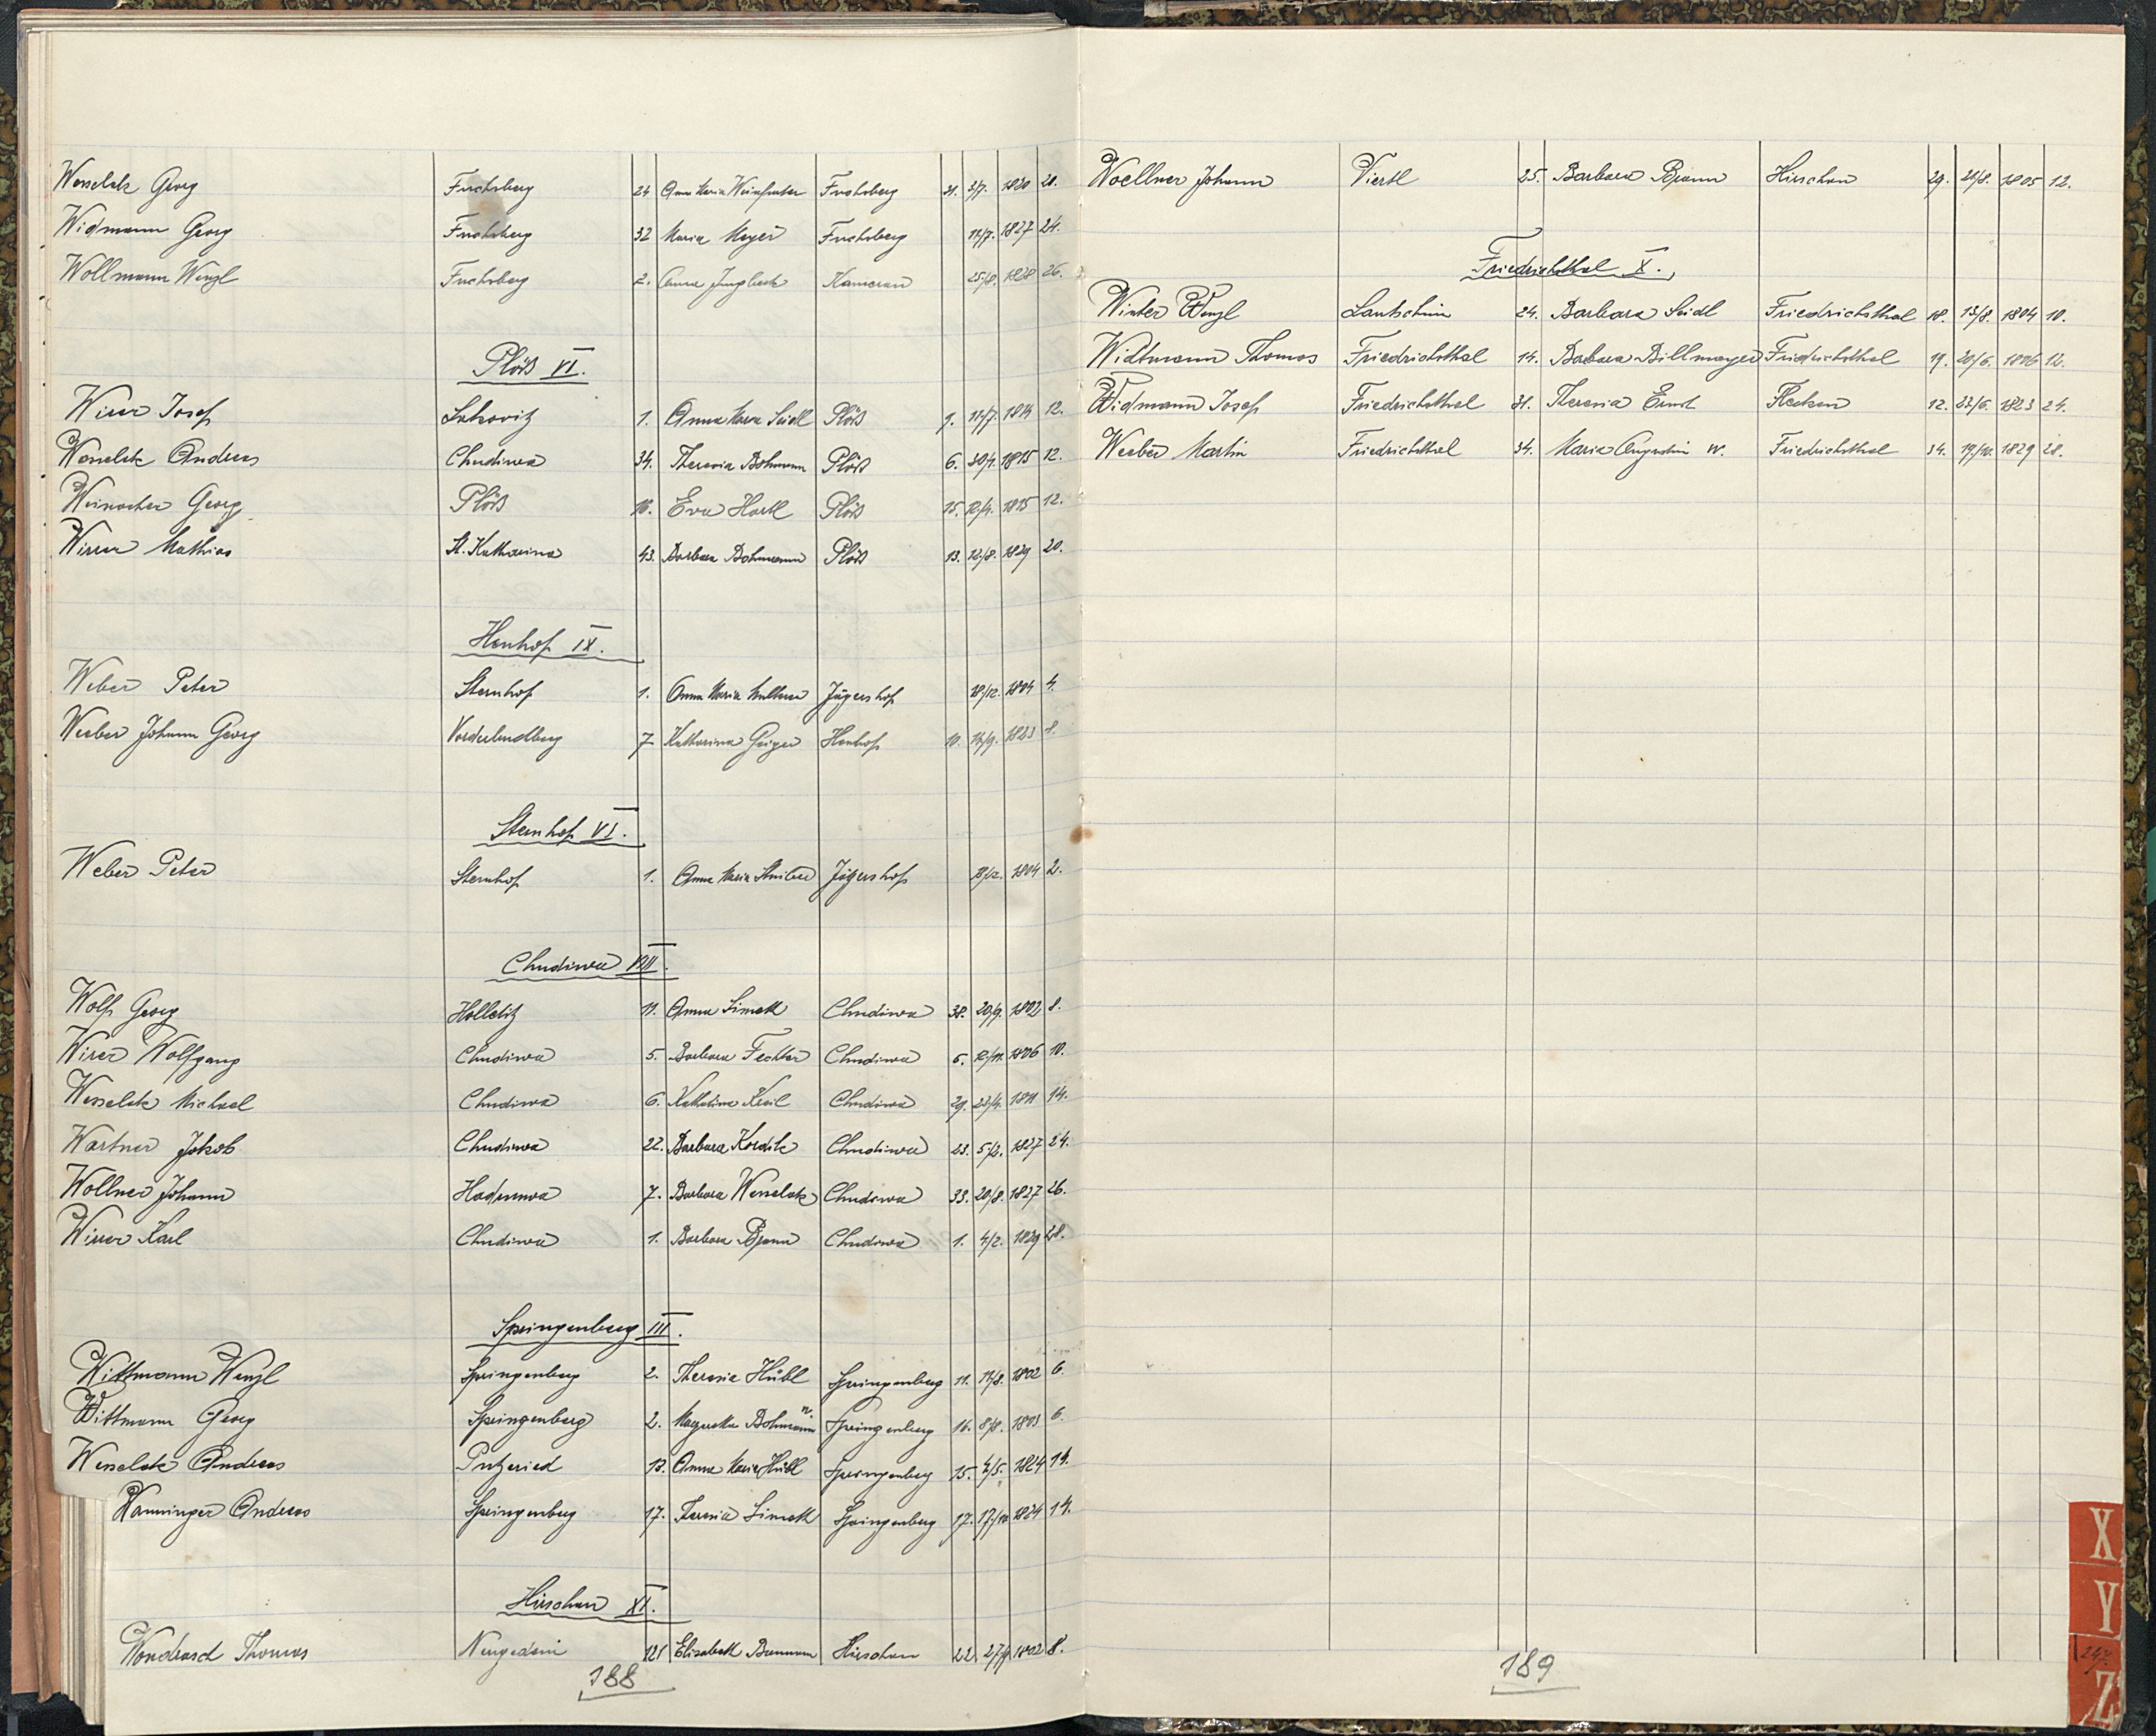 Wesselak Georg Fuchsberg 24 Anna Maria Fuchsberg 21. 3/7. 1820 20.
Widmann Georg Fuchsberg 32 Maria Mayer Fuchsberg 11/7. 1827 24.
Wollmann Wenzl Fuchsberg 2. Anna Jungbeck 25/8. 1828 26.
Plöß VI.
Wirer Josef 1. Anna Maria Seidl Plöß 9. 11/7. 1814 12.
Wesselak Andreas Chudiwa 34. Theresia Bohmann Plöß 6. 1815 12.
Georg Plöß 16. Eva Hartl Plöß 15. 12/4. 1815 12.
Wirrer Mathias St. Katharina 43. Barbara Bohmann Plöß 13. 12/8. 1829 20.
Henhof IX.
Weber Peter Sternhof 1. Anna Maria Jägershof 18/12. 1804 4.
Weeber Johann Georg 7 Katharina Geiger Henhof 10. 1823 8.
Sternhof VI.
Weber Peter Sternhof 1. Anna Maria Jägershof 1804 2.
Chudiwa VIII.
Wolf Georg Holletitz 11. Anna Simek Chudiwa 38. 20/9. 1802 8.
Wirer Wolfgang Chudiwa 5. Barbara Fechter Chudiwa 5. 12/11. 1806 10.
Wesselak Michael Chudiwa 6. Katharina Chudiwa 29. 23/4. 1811 14.
Wartner Jakob Chudiwa 22. Barbara Kordik Chudiwa 23. 5/2. 1827 24.
Wollner Johann Hadruwa 7. Barbara Wesselak Chudiwa 33. 20/8. 1827 26.
Wirrer Karl Chudiwa 1. Barbara Chudiwa 1. 4/2. 1829 28.
Springenberg III.
Wittmann Wenzl Springenberg 2. Theresia Hübl Springenberg 11. 17/8. 1802 6.
Wittmann Georg Springenberg 2. Margaretha Bohmann w. Springenberg 16. 8/8. 1803 6.
Wesselak Andreas Putzeried 13. Anna Maria Hübl Springenberg 15. 4/5. 1824 14.
Wanninger Andreas Springenberg 17. Theresia Simek Springenberg 17. 17/10 1824 14.
Hirschau XI.
Wondrasch Thomas Neugedein 121 Elisabeth Hirschau 22 27/9 1802 8.
188
Woellner Johann Viertl 25. Barbara Hirschau 29. 21/8. 1805 12.
Friedrichsthal X.
Winter Wenzl Lautschim 24. Barbara Seidl Friedrichsthal 18. 13/8. 1804 10.
Widtmann Thomas Friedrichsthal 14. Barbara Billmayer Friedrichsthal 19. 20/6. 1806 12.
Widmann Josef Friedrichsthal 31. Theresia Ernst Flecken 12. 22/6. 1823 24.
Weeber Martin Friedrichsthal 34. Maria Augustin w. Friedrichsthal 34. 19/10. 1829 28.
189
X
Y
Z